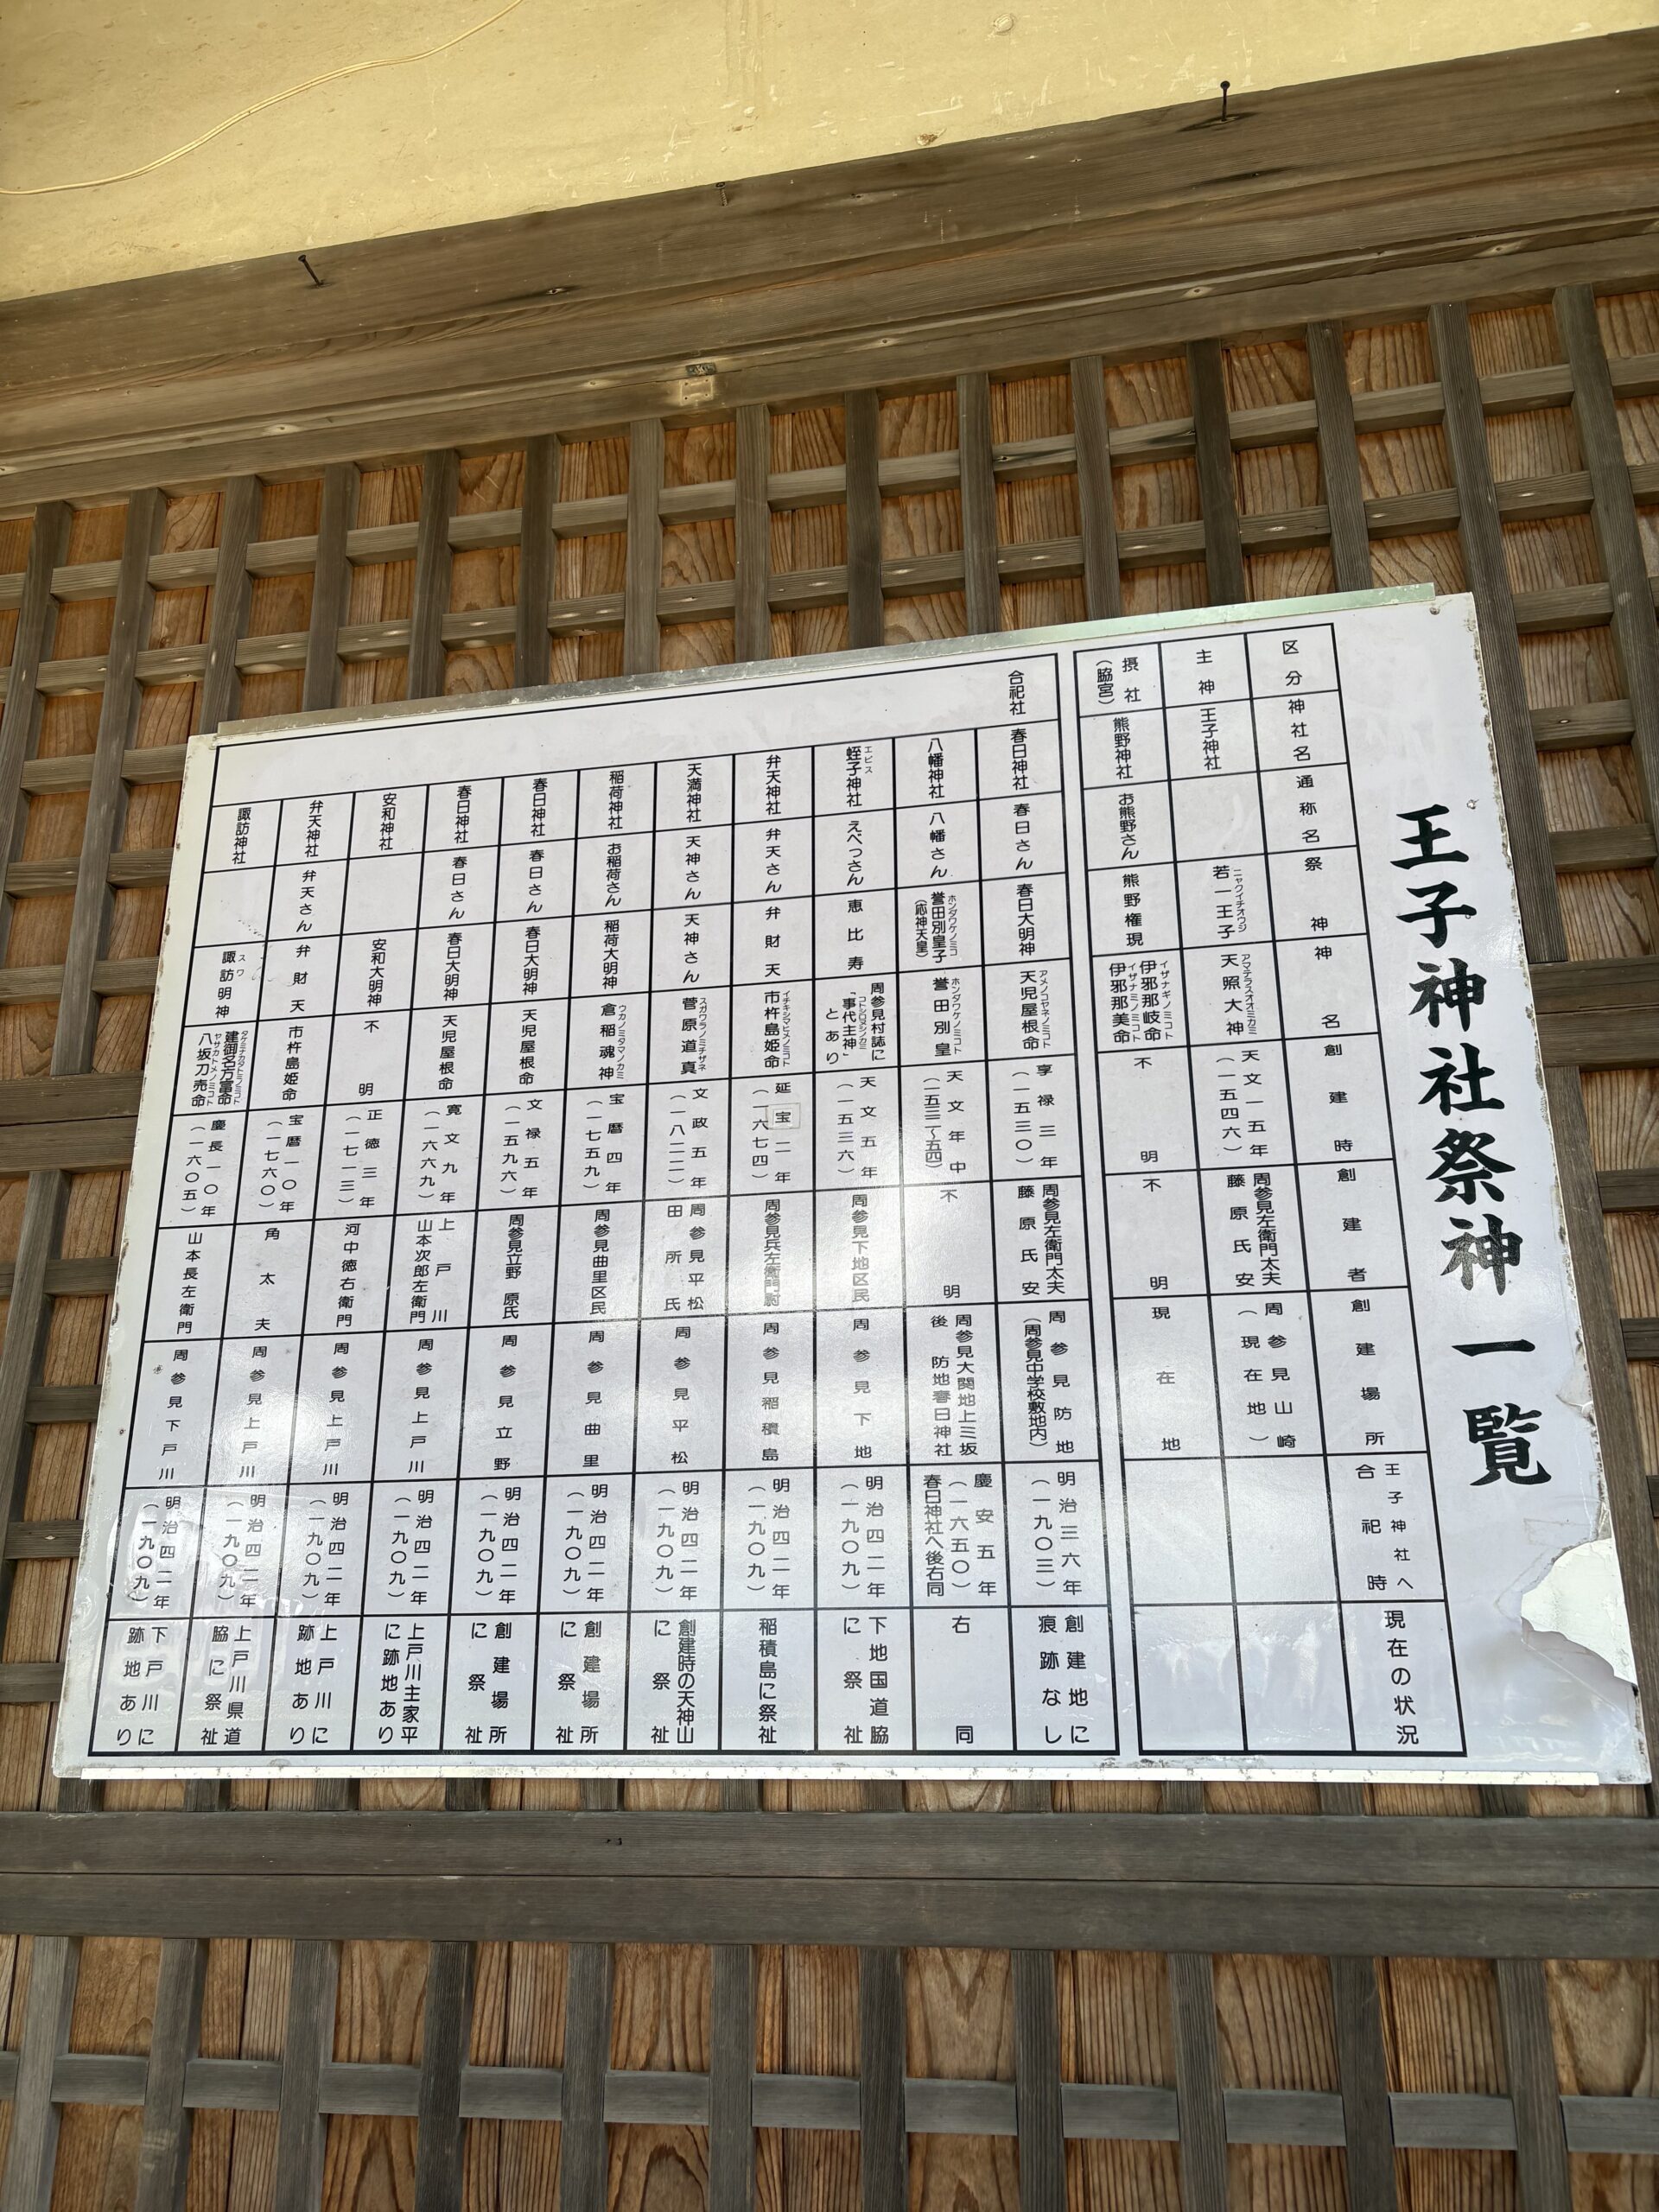 王子神社祭神一覧
区分
神社名
通称名
祭神
神名
創建時
創建者
創建場所
王子神社へ
合祀時
現在の状況
主神
王子神社
若一王子
ニャクイチオウジ
天照大神
アマテラスオオミカミ
天文一五年
(一五四六)
周参見左衛門太夫
藤原氏安
周参見山崎
(現在地)
摂社
(脇宮)
熊野神社
お熊野さん
熊野権現
伊邪那岐命
イザナギノミコト
伊邪那美命
イザナミノミコト
不明
不明
現在地
合祀社
春日神社
春日さん
春日大明神
天児屋根命
アメノコヤネノミコト
享禄三年
(一五三〇)
周参見左衛門太夫
藤原氏安
周参見防地
(周参見中学校敷地内)
明治三六年
(一九〇三)
創建地に
痕跡なし
八幡神社
八幡さん
誉田別皇子
ホンダワケノミコ
(応神天皇)
誉田別皇
ホンダワケノミコト
天文年中
(一五三二~五四)
不明
周参見大関地上ミ坂
後 防地春日神社
慶安五年
(一六五〇)
春日神社へ後右同
右同
蛭子神社
エビス
えべっさん
恵比寿
周参見村誌に
「事代主神」
コトシロヌシノカミ
とあり
天文五年
(一五三六)
周参見下地区民
周参見下地
明治四二年
(一九〇九)
下地国道脇
に祭祉
弁天神社
弁天さん
弁財天
市杵島姫命
イチキシマヒメノミコト
延宝二年
(一六七四)
周参見兵左衛門尉
周参見稲積島
明治四二年
(一九〇九)
稲積島に祭祉
天満神社
天神さん
天神さん
菅原道真
スガワラノミチザネ
文政五年
(一八二二)
周参見平松
田所氏
周参見平松
明治四二年
(一九〇九)
創建時の天神山
に祭祉
稲荷神社
お稲荷さん
稲荷大明神
倉稲魂神
ウカノミタマノカミ
宝暦四年
(一七五九)
周参見曲里区民
周参見曲里
明治四二年
(一九〇九)
創建場所
に祭祉
春日神社
春日さん
春日大明神
天児屋根命
文禄五年
(一五九六)
周参見立野 原氏
周参見立野
明治四二年
(一九〇九)
創建場所
に祭祉
春日神社
春日さん
春日大明神
天児屋根命
寛文九年
(一六六九)
上戸川
山本次郎左衛門
周参見上戸川
明治四二年
(一九〇九)
上戸川主家平
に跡地あり
安和神社
安和大明神
不明
正徳三年
(一七一三)
河中徳右衛門
周参見上戸川
明治四二年
(一九〇九)
上戸川に
跡地あり
弁天神社
弁天さん
弁財天
市杵島姫命
宝暦一〇年
(一七六〇)
角太夫
周参見上戸川
明治四二年
(一九〇九)
上戸川県道
脇に祭祉
諏訪神社
諏訪明神
スワ
建御名方富命
タケミナカタトミノミコト
八坂刀売命
ヤサカトメノミコト
慶長一〇年
(一六〇五)
山本長左衛門
周参見下戸川
明治四二年
(一九〇九)
下戸川に
跡地あり